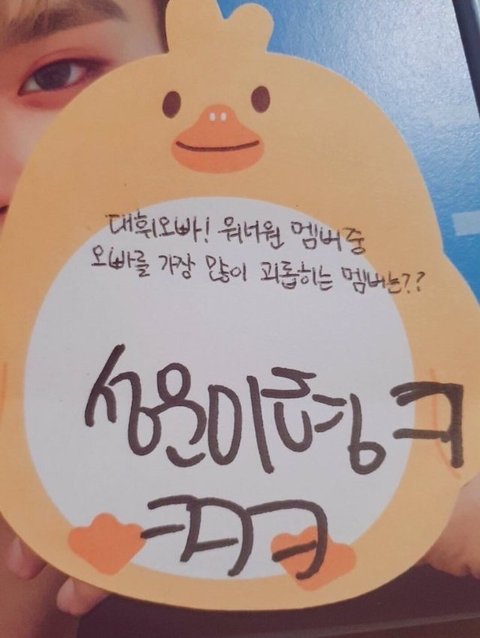 대휘오빠! 워너원 멤버중
오빠를 가장 많이 괴롭히는 멤버는??
성운이형ㅋ
ㅋㅋㅋ